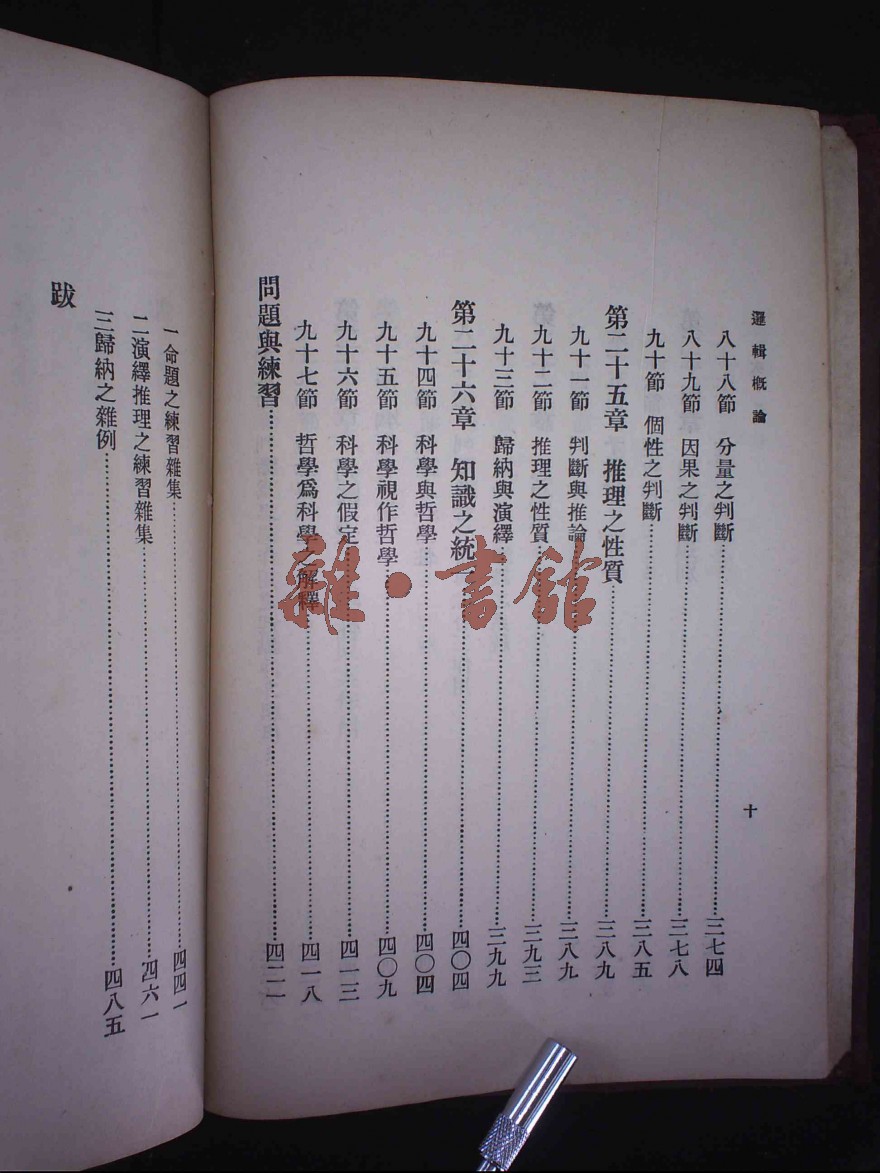 邏輯概論
八十八節 分量之判斷……三七四
八十九節 因果之判斷……三七八
九十節 個性之判斷……三八五
第二十五章 推理之性質……三八九
九十一節 判斷與推論……三八九
九十二節 推理之性質……三九三
九十三節 歸納與演繹……三九九
第二十六章 知識之統一……四〇四
九十四節 科學與哲學……四〇四
九十五節 科學視作哲學……四〇九
九十六節 科學之假定……四一三
九十七節 哲學爲科學之解釋……四一八
問題與練習……四二一
十
一命題之練習雜集……四四一
二演繹推理之練習雜集……四六一
三歸納之雜例……四八五
跋
雜·書館